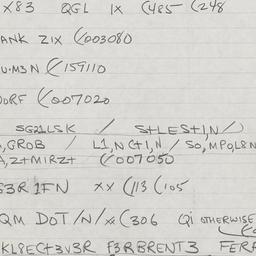 X83 QGL 1X (485 (248
ANK Z1X (/003080
U·M3N (/159110
DORF (/007020
SG21LSK / S+LES+1,N/)
,GROB / L1,NC+1,N / SO,MPQL8N
A,Z+M1RZ+ (/007050
G3R 1FN XX (/13 (105
QM DOT /N/X (306 (Qi OTHERWISE
KL8EC+3V3R F3RBRENT3 FERR